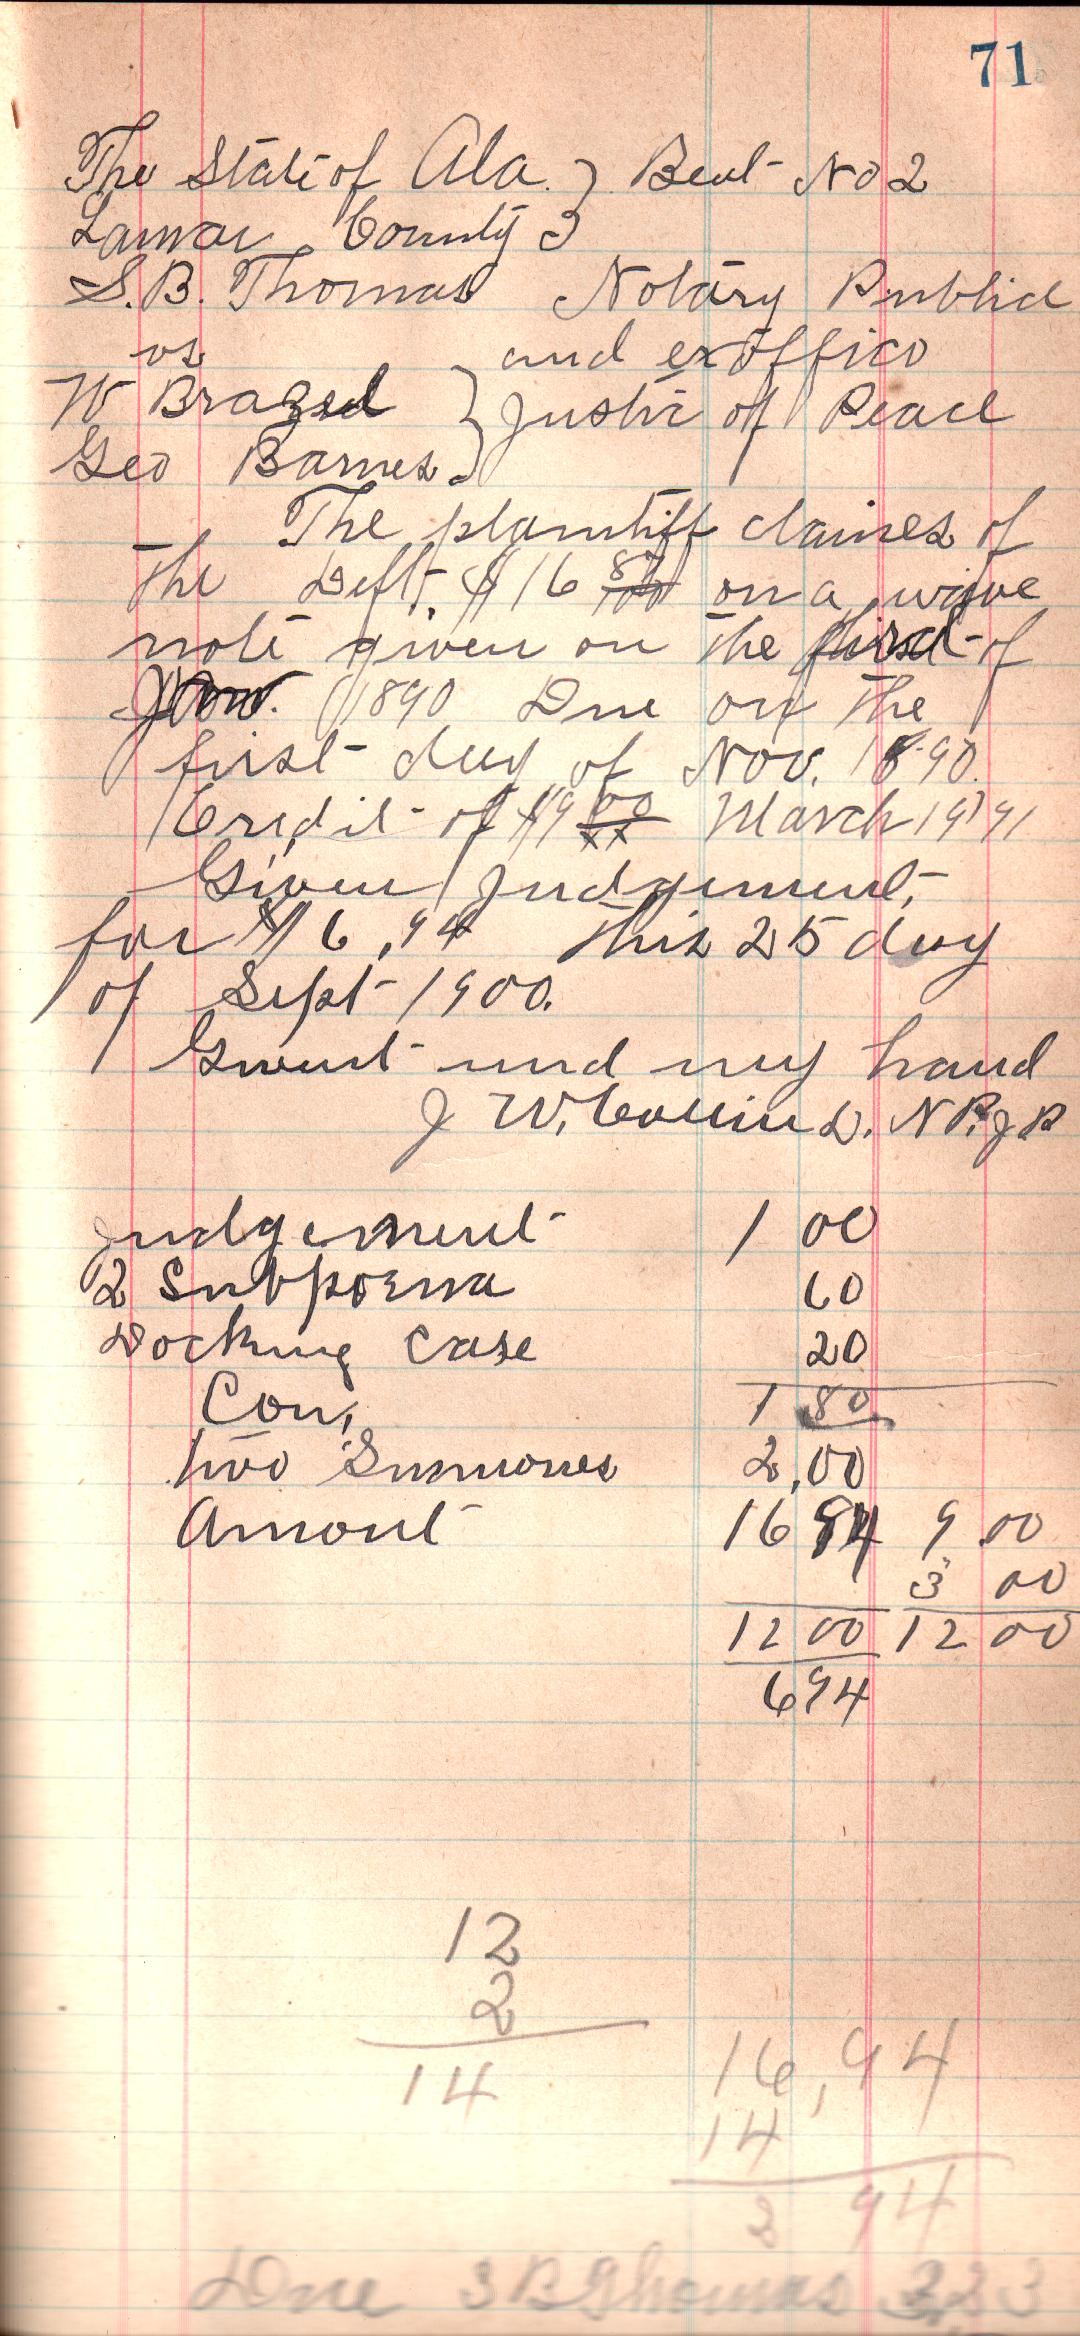 71
The State of Ala. } Beat No 2
Lamar County }
S. B. Thomas Notary Public
vs and exoffico
W Brazeel } Justic of Peace
Geo Barnes }
The plaintiff claimes of
the Deft. $16 on a wave
note given on the first of
1890 Due on the
first day of Nov. 1890.
Credit of $9 00 March 19 91
Given Judgement,
for $16,94 This 25 day
of Sept 1900.
Givent und my hand
J W. Collins. N P. J P
Judgement 1 00
2 Subpoena 60
Docking Case 20
Con, 1 80
two Summones 2,00
Amont 16 94 9 00
3 00
12 00 12 00
6 94
12
2
14
16,94
14
2 94
Due S B Thomas